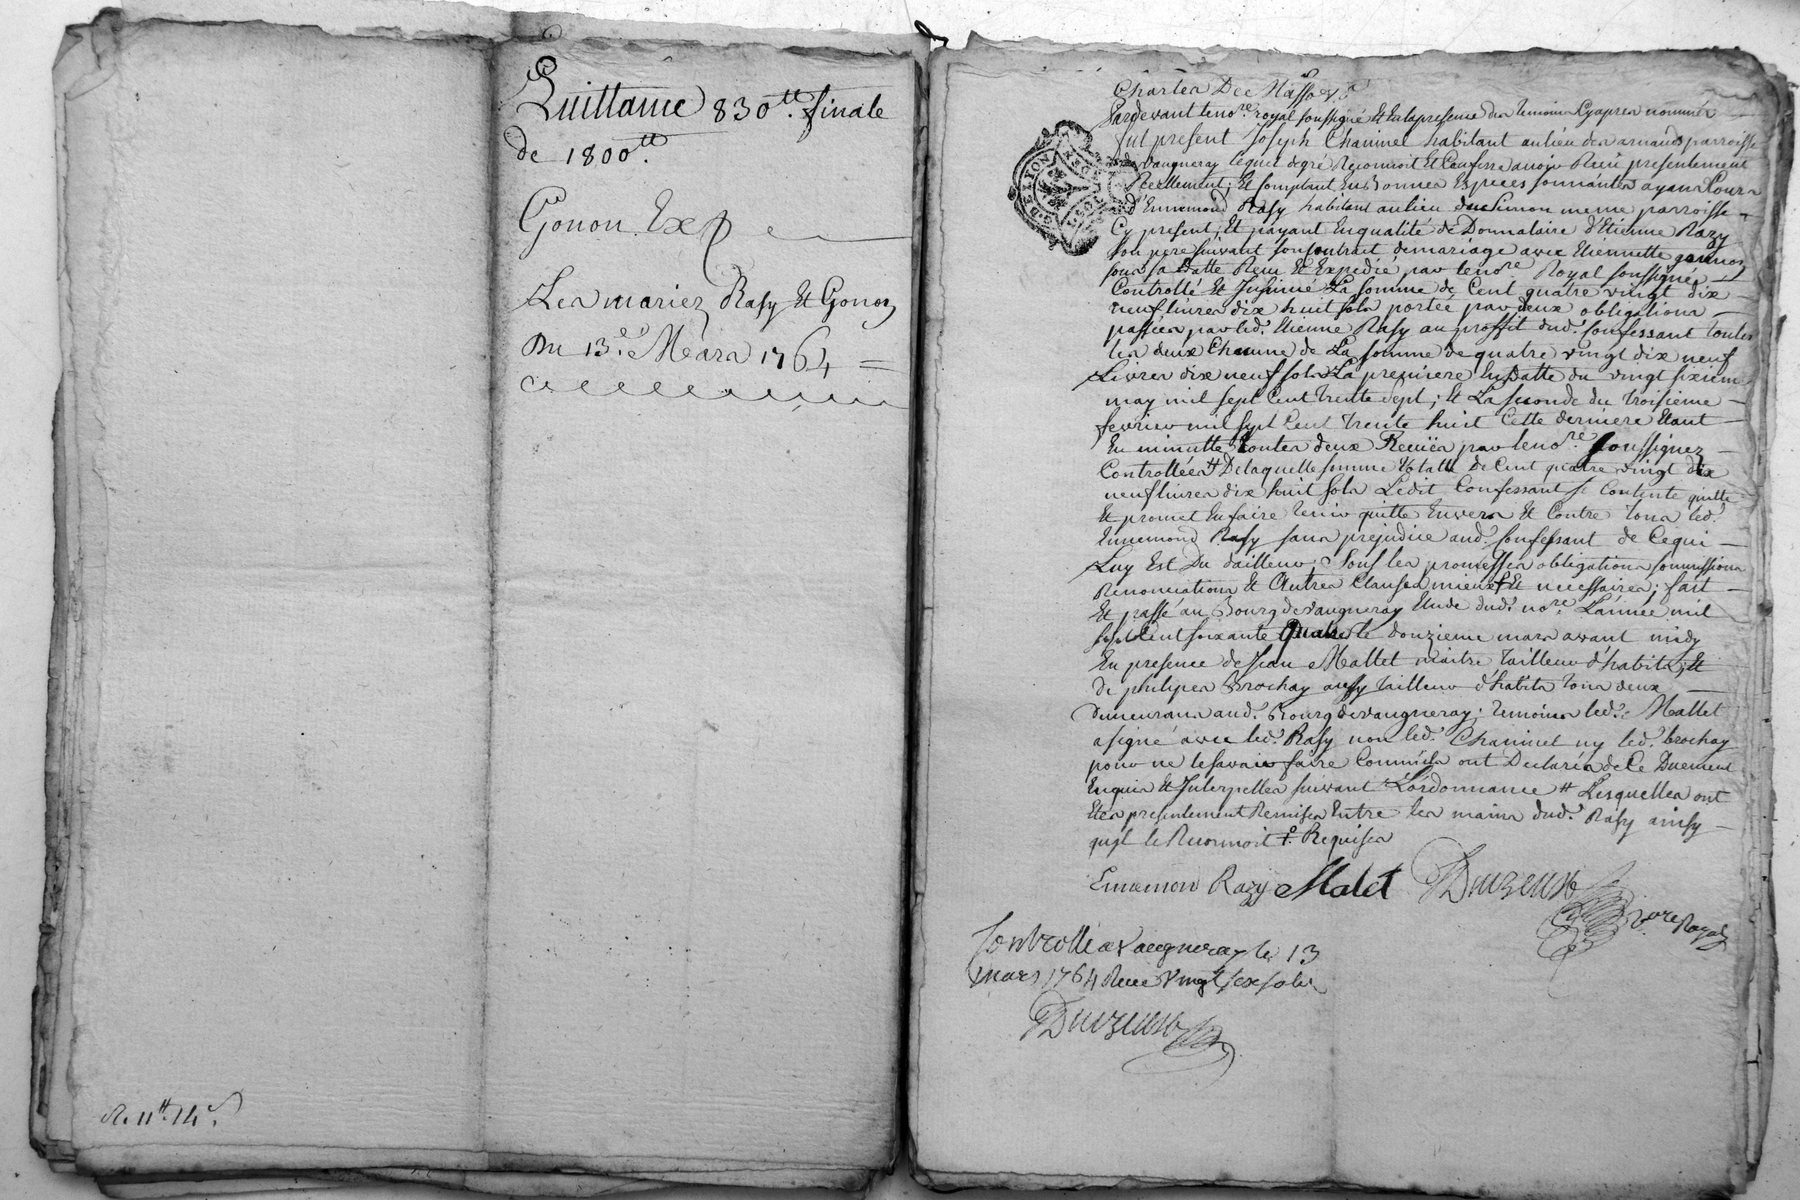 Quittance 830ᵗᵗ. finale
de 1800ᵗᵗ.
Gonon Exp
Les mariez Rasy Et Gonon
Du 13ᵉ. Mars 1764
R. 11ᵗᵗ. 14ˢ.
G. DE LION
Pardevant leno.ʳᵉ royal soussigné Et en la presense des temoins Cyapres nommés
fut present Joseph Chaninel habitant au lieu des arnauds parroisse
de vaugneray lequel de gré Reconnoit Et Confesse avoir Reçu presentement
Reellement, Et Comptant En Bonnes Especes sonnantes ayant Cours
d'Ennemond Rasy habitant au lieu du Simon meme parroisse
Cy present, Et payant En qualité de Donnataire d'Etienne Razy
son pere suivant son Contrat de mariage avec Etiennette gonnon
sous sa Datte Reçu Et Expedié par leno.ʳᵉ Royal soussigné
Controllé Et Insinué La somme de Cent quatre vingt dix
neuf livres dix huit sols portée par deux obligations
passées par led. Etienne Rasy au proffit dud. Confessant toutes
les deux Chacune de La somme de quatre vingt dix neuf
Livres dix neuf sols La premiere En Datte du vingt sixieme
may mil sept Cent trente sept; Et La seconde du troisieme
fevrier mil sept Cent trente huit Cette derniere Etant
En minutte toutes deux Reçües par leno.ʳᵉ soussignez
Controllées # De laquelle somme totalle de Cent quatre vingt dix
neuf livres dix huit sols Ledit Confessant se Contente quitte
Et promet En faire tenir quitte Envers Et Contre tous led.
Ennemond Rasy sans prejudice aud. Confessant de Ce qui
Luy Est Du d'ailleur; Sous les promesses obligations soumissions
Renonciations Et Autres Clauses Et necessaires; fait
Et passé au Bourg de vaugneray Etude dud. no.ʳᵉ L'année mil
sept Cent soixante quatre le douzieme mars avant midy
En presence de Jean Mallet maitre tailleur d'habits, Et
de philipes Brochay aussy tailleur d'habits tous deux
Demeurans aud. Bourg de vaugneray; temoins led. Mallet
a signé avec led. Rasy non led. Chaninel ny led. brochay
pour ne le savoir faire Comm'ils ont Declarés de Ce Duement
Enquis Et Interpellés suivant L'ordonnance # Lesquelles ont
Etés presentement Remises Entre les mains dud. Rasy ainsy
qu'il le Reconnoit Requises
Ennemon Razy Malet
no.ʳᵉ Royal
Controllé a Vaugneray le 13
mars 1764 Recu Vingt six sols